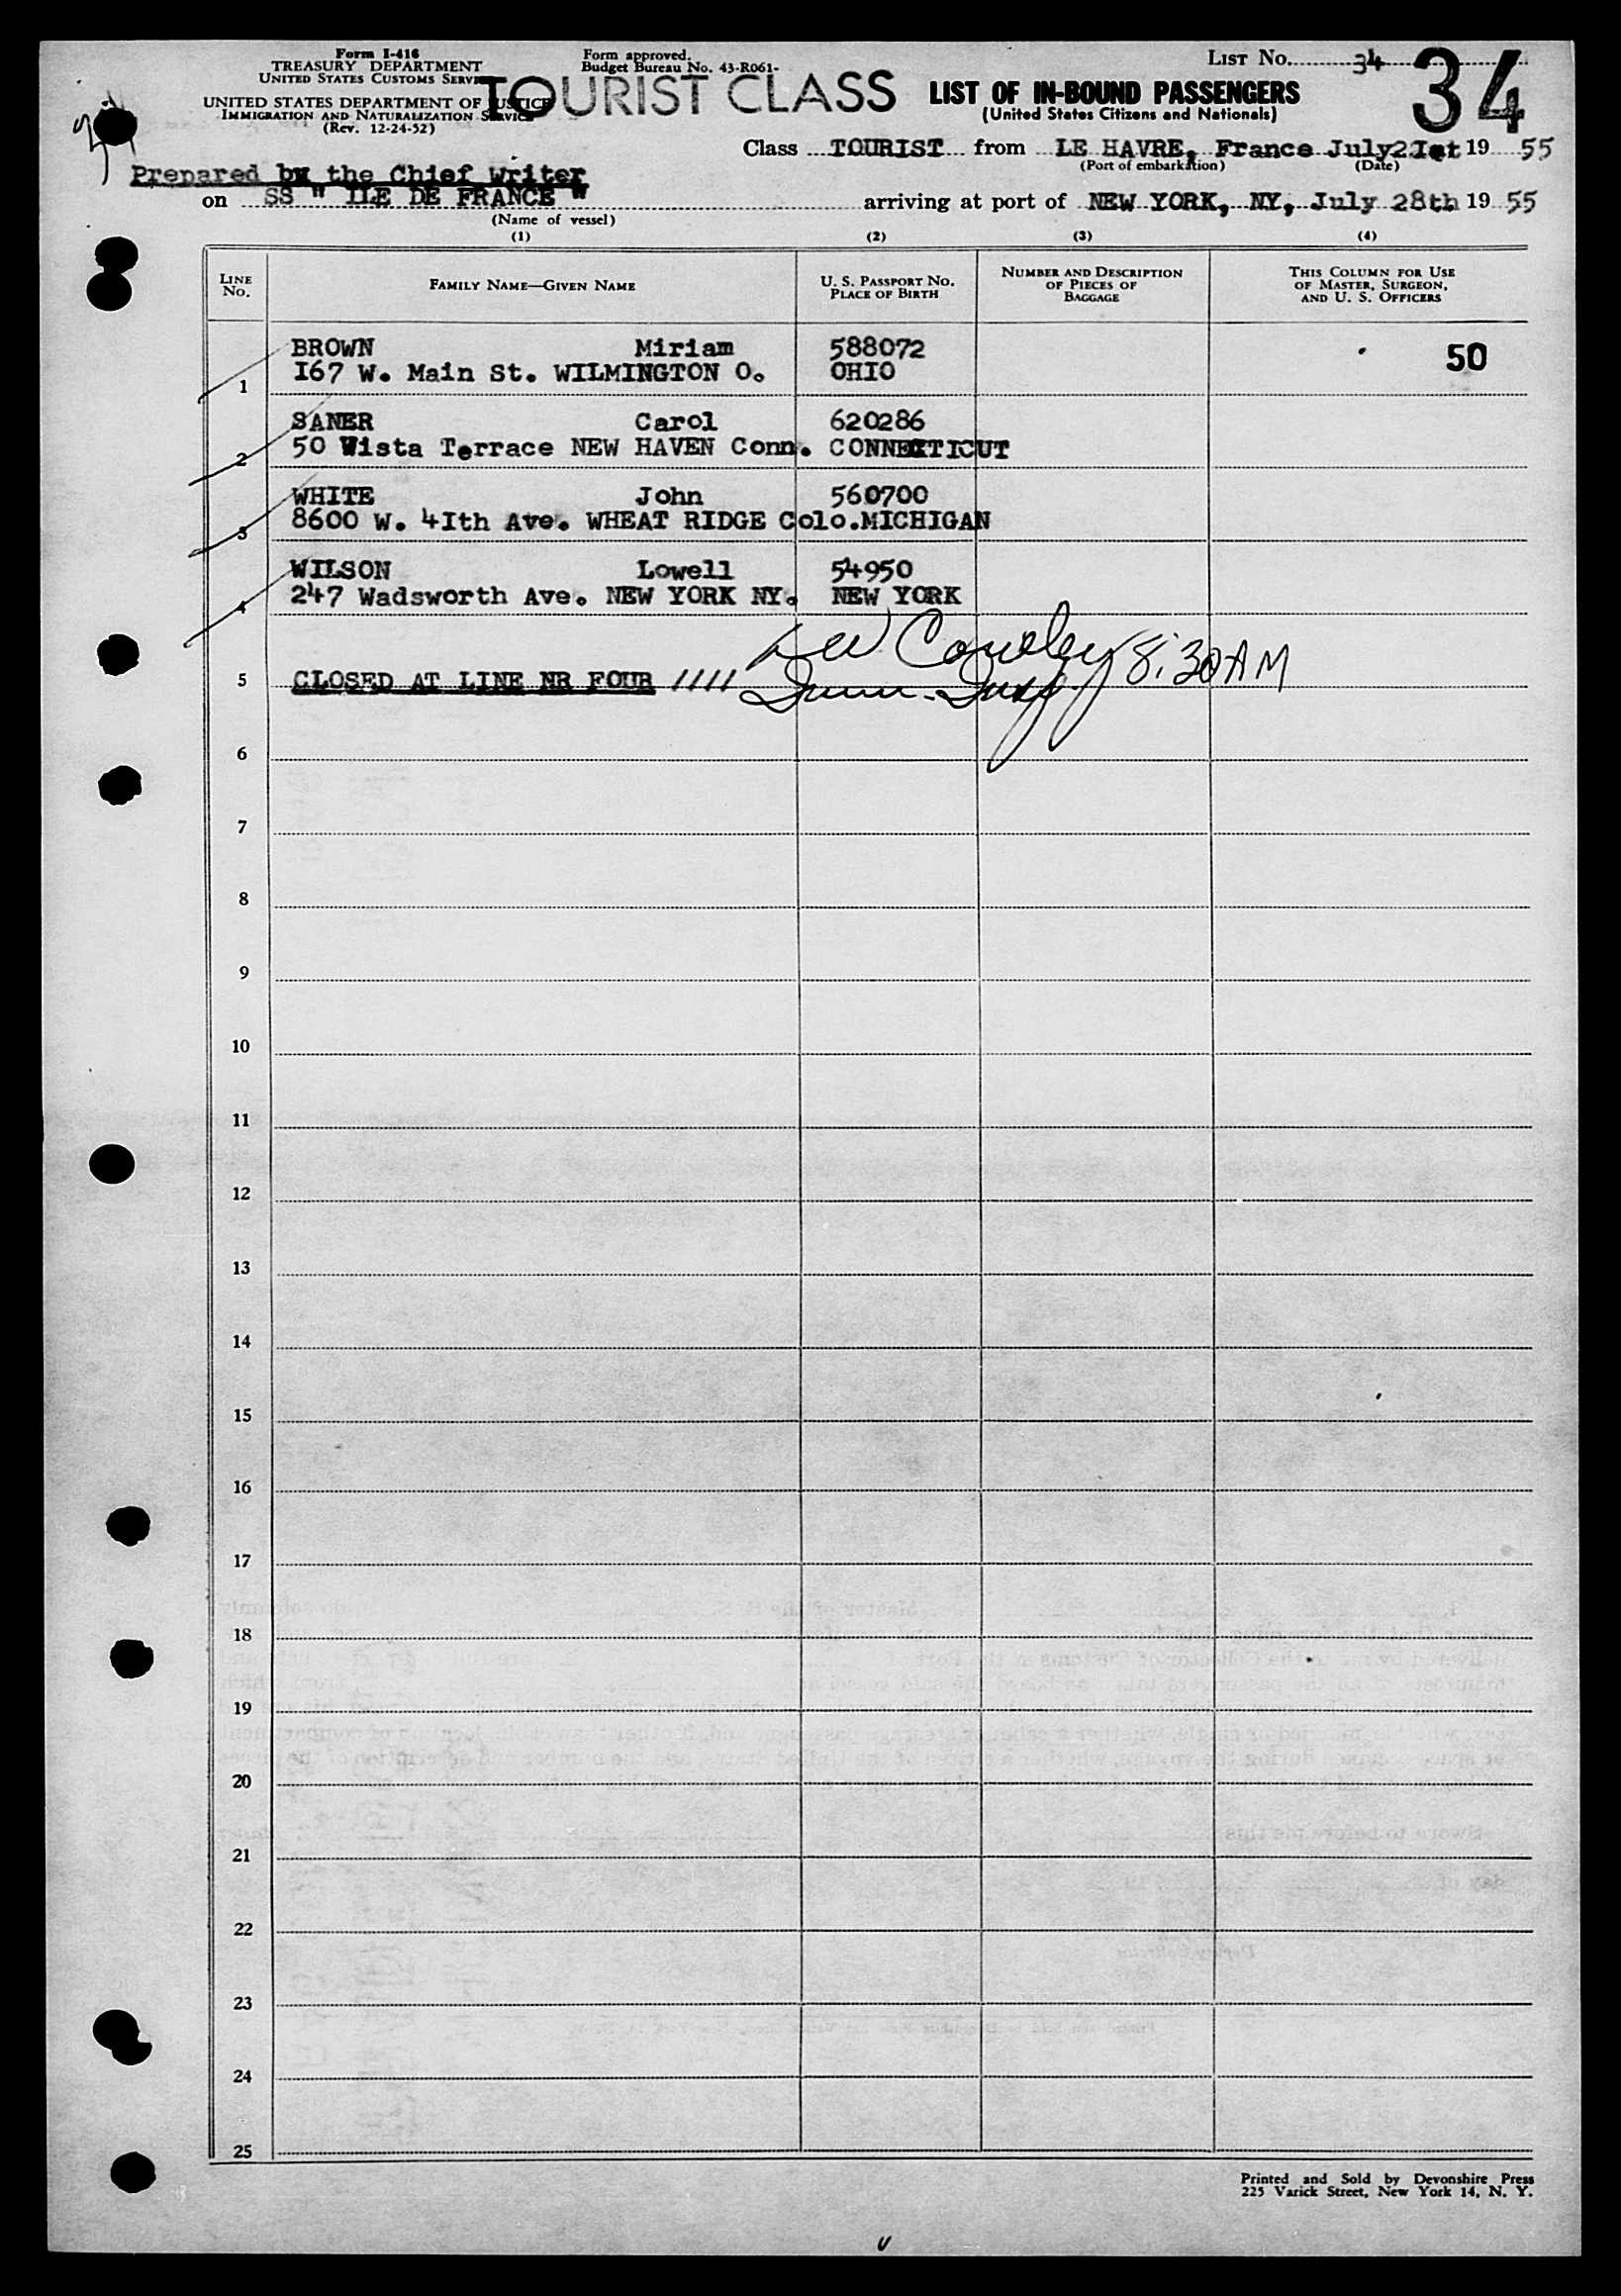 Form I-416
TREASURY DEPARTMENT
UNITED STATES CUSTOMS SERVICE
UNITED STATES DEPARTMENT OF JUSTICE
IMMIGRATION AND NATURALIZATION SERVICE
(Rev. 12-24-52)
Form approved.
Budget Bureau No. 43-R061-
TOURIST CLASS
LIST OF IN-BOUND PASSENGERS
(United States Citizens and Nationals)
LIST No. 34
34
Class TOURIST from LE HAVRE, France July 2Ist 19 55
(Port of embarkation) (Date)
Prepared by the Chief Writer
on SS " ILE DE FRANCE " arriving at port of NEW YORK, NY, July 28th 19 55
(Name of vessel)
(1) (2) (3) (4)
LINE No. FAMILY NAME—GIVEN NAME U. S. PASSPORT No. PLACE OF BIRTH NUMBER AND DESCRIPTION OF PIECES OF BAGGAGE THIS COLUMN FOR USE OF MASTER, SURGEON, AND U. S. OFFICERS
BROWN Miriam 588072 50
1 I67 W. Main St. WILMINGTON O. OHIO
SANER Carol 620286
2 50 Vista Terrace NEW HAVEN Conn. CONNECTICUT
WHITE John 560700
3 8600 W. 4Ith Ave. WHEAT RIDGE Colo. MICHIGAN
WILSON Lowell 54950
4 247 Wadsworth Ave. NEW YORK NY. NEW YORK
5 CLOSED AT LINE NR FOUR //// 8:30 AM
6
7
8
9
10
11
12
13
14
15
16
17
18
19
20
21
22
23
24
25
Printed and Sold by Devonshire Press
225 Varick Street, New York 14, N. Y.